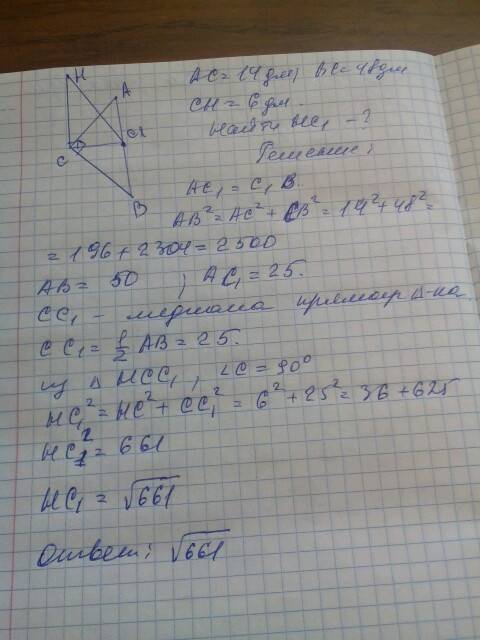 H
A
C
C1
B
AC = 14 дм, BC = 48 дм
CH = 6 дм.
Найти HC₁ - ?
Решение:
AC₁ = C₁B.
AB² = AC² + CB² = 14² + 48² =
= 196 + 2304 = 2500
AB = 50 ; AC₁ = 25.
CC₁ - медиана прямоуг Δ-ка.
CC₁ = 1/2 AB = 25.
из Δ HCC₁, ∠C = 90°
HC₁² = HC² + CC₁² = 6² + 25² = 36 + 625
HC₁² = 661
HC₁ = √661
Ответ: √661